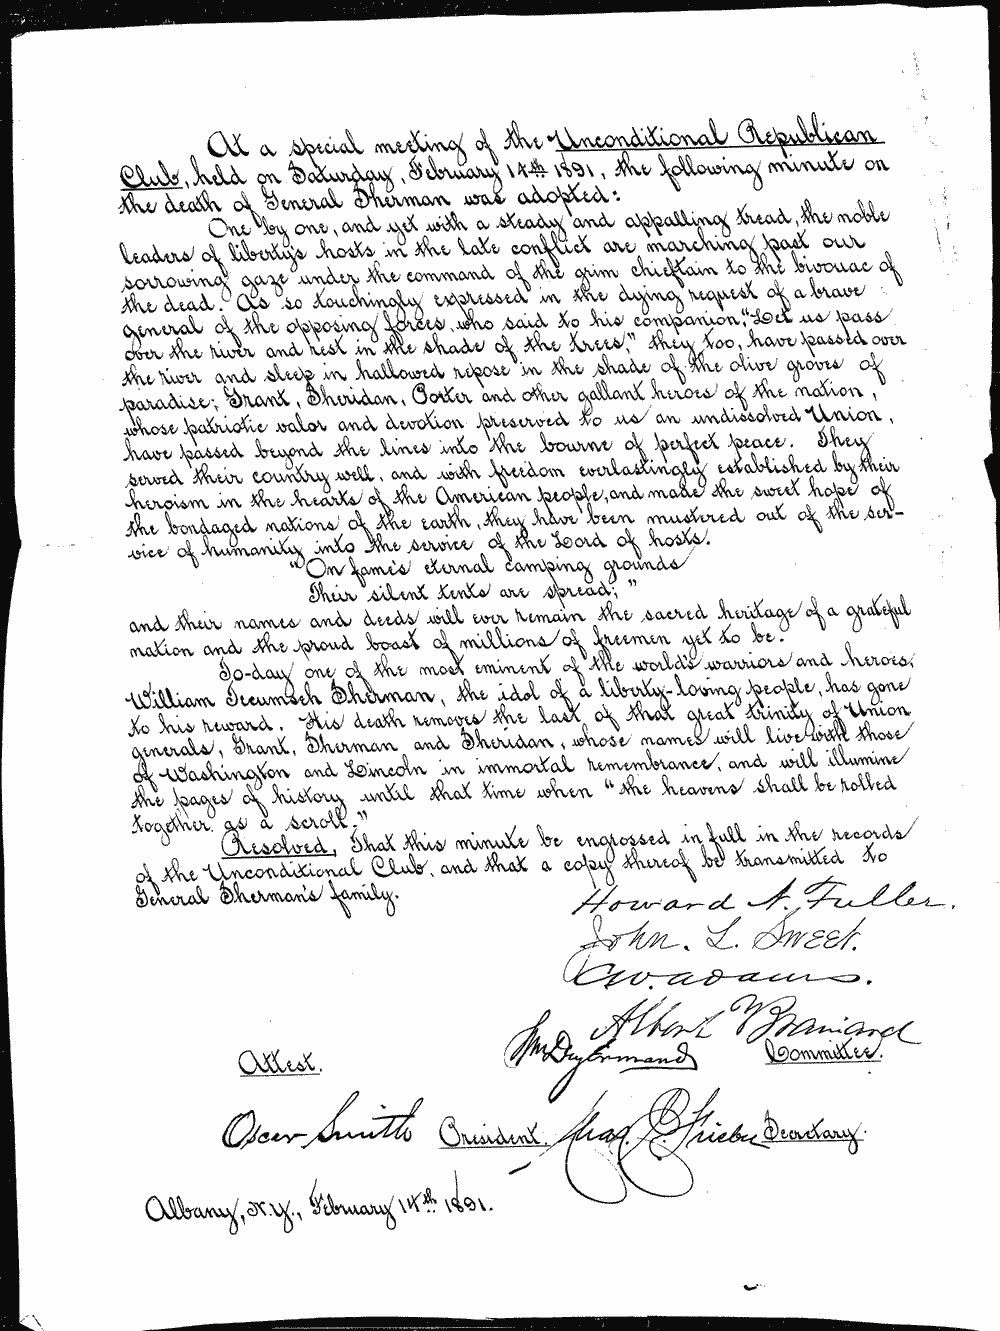 At a special meeting of the Unconditional Republican
Club, held on Saturday, February 14th 1891, the following minute on
the death of General Sherman was adopted:
One by one, and yet with a steady and appalling tread, the noble
leaders of liberty's hosts in the late conflict are marching past our
sorrowing gaze under the command of the grim chieftain to the bivouac of
the dead. As so touchingly expressed in the dying request of a brave
general of the opposing forces, who said to his companion, "Let us pass
over the river and rest in the shade of the trees," they too, have passed over
the river and sleep in hallowed repose in the shade of the olive groves of
paradise; Grant, Sheridan, Porter and other gallant heroes of the nation,
whose patriotic valor and devotion preserved to us an undissolved Union,
have passed beyond the lines into the bourne of perfect peace. They
served their country well, and with freedom everlastingly established by their
heroism in the hearts of the American people, and made the sweet hope of
the bondaged nations of the earth, they have been mustered out of the ser-
vice of humanity into the service of the Lord of hosts.
"On fame's eternal camping grounds
Their silent tents are spread;"
and their names and deeds will ever remain the sacred heritage of a grateful
nation and the proud boast of millions of freemen yet to be.
To-day one of the most eminent of the world's warriors and heroes,
William Tecumseh Sherman, the idol of a liberty-loving people, has gone
to his reward. His death removes the last of that great trinity of Union
generals, Grant, Sherman and Sheridan, whose names will live with those
of Washington and Lincoln in immortal remembrance, and will illumine
the pages of history until that time when "the heavens shall be rolled
together as a scroll."
Resolved, That this minute be engrossed in full in the records
of the Unconditional Club, and that a copy thereof be transmitted to
General Sherman's family.
Howard N. Fuller.
John. L. Sweet.
C.W. Adams.
Albert Brainard
Wm
Committee.
Attest.
Oscar Smith President. Secretary.
Albany, N.Y., February 14th 1891.